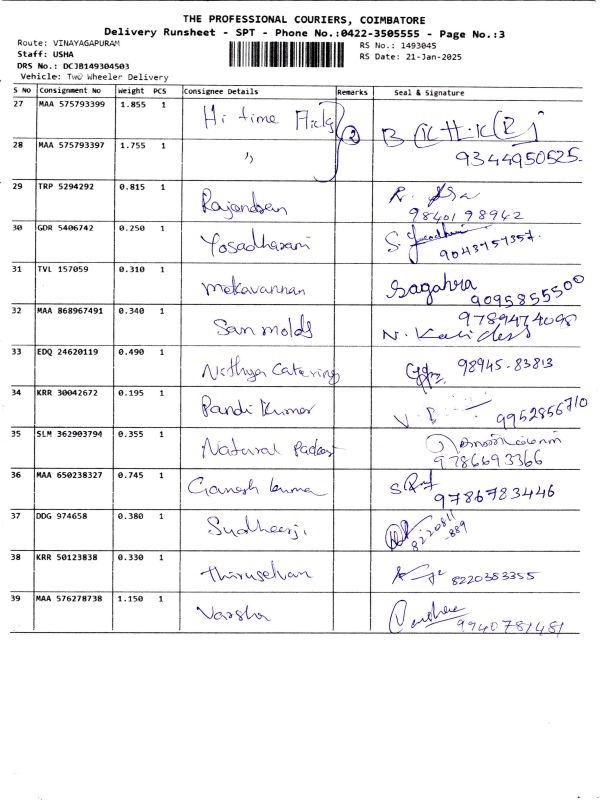 THE PROFESSIONAL COURIERS, COIMBATORE
Delivery Runsheet - SPT - Phone No.:0422-3505555 - Page No.:3
Route: VINAYAGAPURAM
RS No.: 1493045
Staff: USHA
RS Date: 21-Jan-2025
DRS No.: DCJB149304503
Vehicle: Two Wheeler Delivery
S No Consignment No Weight PCS Consignee Details Remarks Seal & Signature
27 MAA 575793399 1.855 1 Hi time
28 MAA 575793397 1.755 1 " 2 9344950525
29 TRP 5294292 0.815 1 98401 98942
30 GDR 5406742 0.250 1 Yosadharani 9043757357
31 TVL 157059 0.310 1 mekavannan 9095855500
32 MAA 868967491 0.340 1 San molds 9789474098
33 EDQ 24620119 0.490 1 Nithya Catering 98945-83813
34 KRR 30042672 0.195 1 Pandi Kumar 9952856710
35 SLM 362903794 0.355 1 Natural 9786693366
36 MAA 650238327 0.745 1 Ganesh kumar 9786783446
37 DDG 974658 0.380 1 Sudheerji 8220811889
38 KRR 50123838 0.330 1 Thiruselvan 8220383355
39 MAA 576278738 1.150 1 Varsha 9940781481